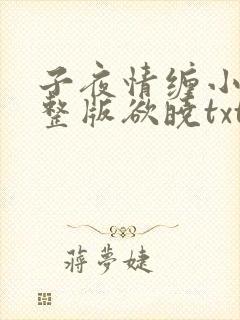 子夜情缠小
整版欲晓txt
蒋夢婕